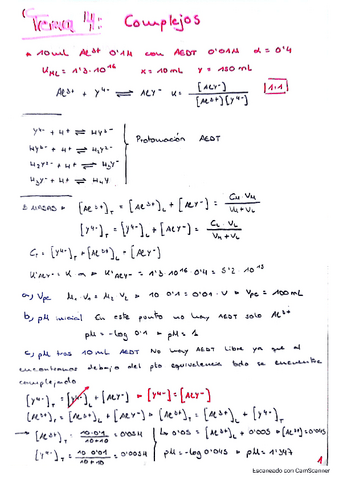 Tema 4: Complejos
* 10 ml Al3+ 0'1M con AEDT 0'01M α = 0'4
K ML = 1'3·10^16 x = 10 mL y = 150 mL
Al3+ + Y4- ⇌ AlY- K = [AlY-] / [Al3+][Y4-] 1:1
Y4- + H+ ⇌ HY3-
HY3- + H+ ⇌ H2Y2-
H2Y2- + H+ ⇌ H3Y-
H3Y- + H+ ⇌ H4Y
Protonación AEDT
B MASAS * [Al3+]T = [Al3+]L + [AlY-] = CM VM / VM+VL
[Y4-]T = [Y4-]L + [AlY-] = CL VL / VM+VL
= [Y4-]T + [Al3+]L = [AlY-]
= 1'3·10^16 · 0'4 = 5'2·10^15
a) Vpe M· V = ML VL 10·0'1 = 0'01·V Vpe = 100mL
b) pM inicial En este punto no hay AEDT solo Al3+
pM = -log 0'1 pM = 1
c) pM tras 10 mL AEDT No hay AEDT libre ya que al
encontrarnos debajo del pto equivalencia todo se encuentra
complejado
[Y4-]T = [Y4-]L + [AlY-] [Y4-] = [AlY-]
[Al3+]T = [Al3+]L + [AlY-] [Al3+]T = [Al3+]L + [Y4-]T
→ [Al3+]T = 10·0'1 / 10+10 = 0'05M
0'05 = [Al3+]L + 0'005 [Al3+] = 0'045
[Y4-]T = 10·0'01 / 10+10 = 0'005M
pM = -log 0'045 pM = 1'347
1
Escaneado con CamScanner